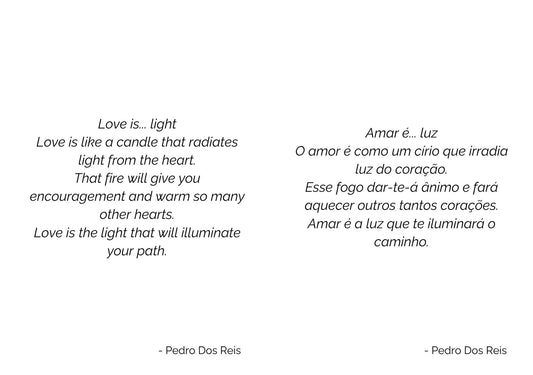 Love is... light
Love is like a candle that radiates
light from the heart.
That fire will give you
encouragement and warm so many
other hearts.
Love is the light that will illuminate
your path.
- Pedro Dos Reis
Amar é... luz
O amor é como um círio que irradia
luz do coração.
Esse fogo dar-te-á ânimo e fará
aquecer outros tantos corações.
Amar é a luz que te iluminará o
caminho.
- Pedro Dos Reis